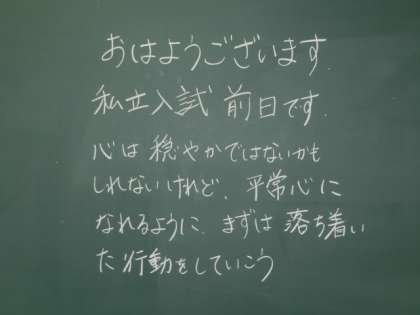 おはようございます.
私立入試 前日です.
心は穏やかではないかも
しれないけれど、平常心に
なれるように、まずは落ち着い
た行動をしていこう